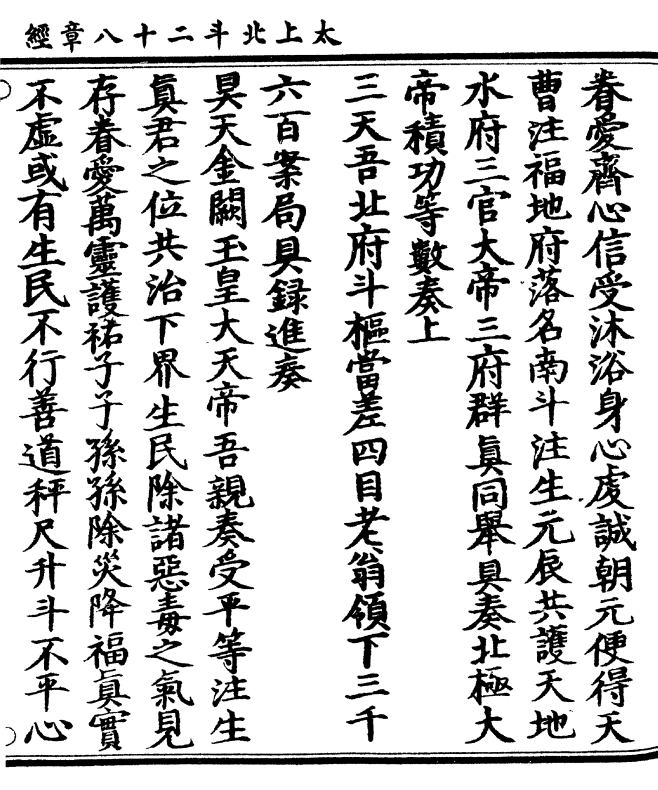 太上北斗二十八章經
眷愛齊心信受沐浴身心虔誠朝元便得天
曹注福地府落名南斗注生元辰共護天地
水府三官大帝三府群真同舉具奏北極大
帝積功等數奏上
三天吾北府斗樞當差四目老翁領下三千
六百案局具録進奏
昊天金闕玉皇大天帝吾親奏受平等注生
真君之位共治下界生民除諸惡毒之氣見
存眷愛萬靈護祐子子孫孫除災降福真實
不虛或有生民不行善道秤尺升斗不平心